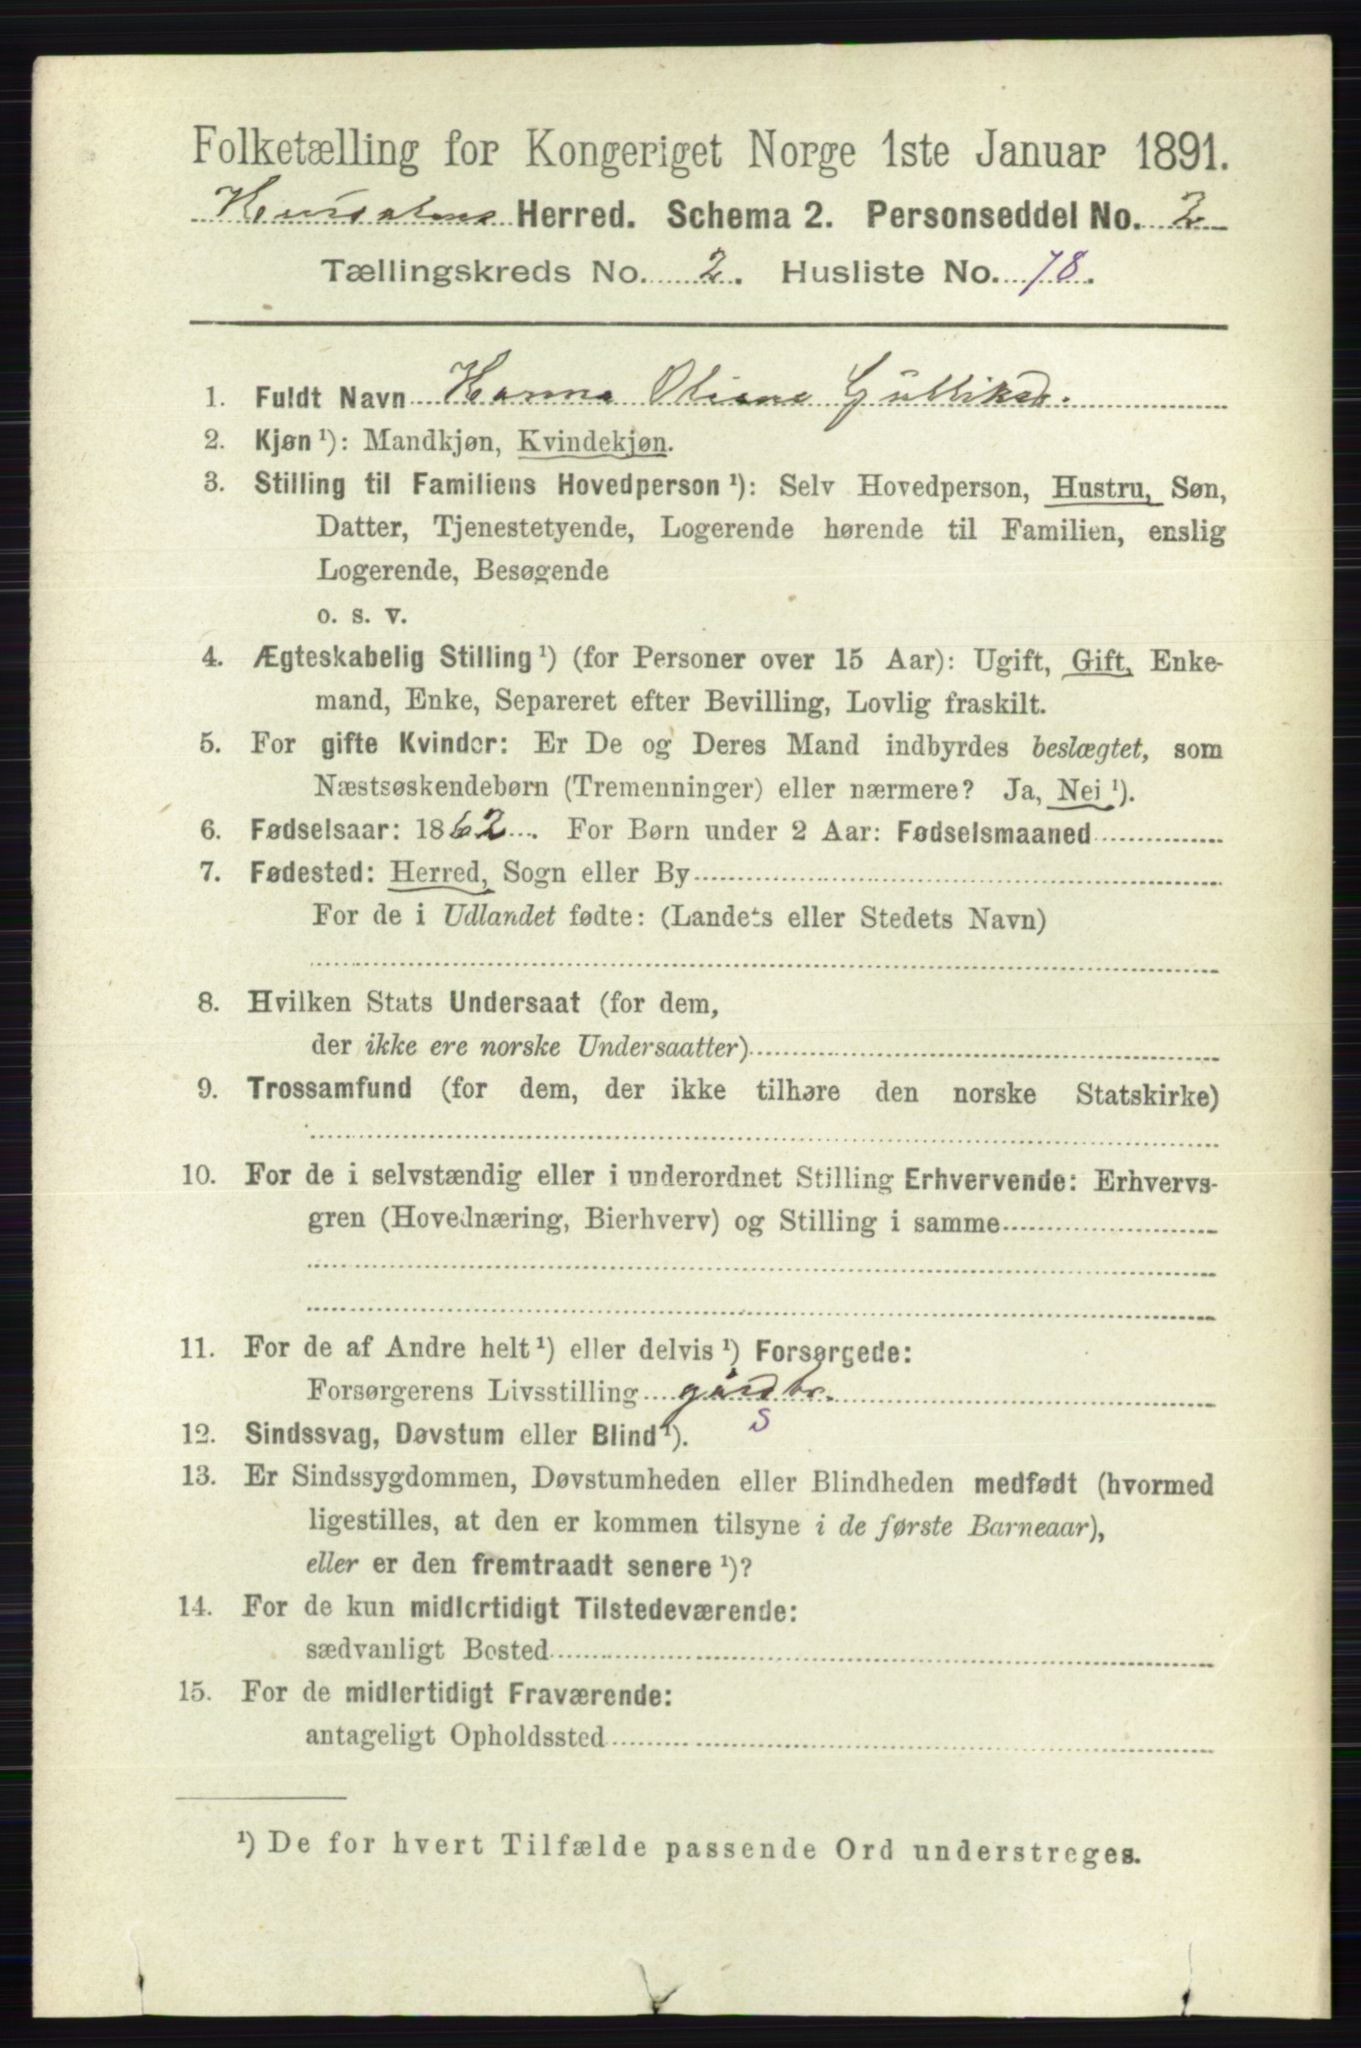 Folketælling for Kongeriget Norge 1ste Januar 1891.
Hurdalens Herred. Schema 2. Personseddel No. 2
Tællingskreds No. 2. Husliste No. 78.
1. Fuldt Navn Hanna Oliane Gulliksd.
2. Kjøn ¹): Mandkjøn, Kvindekjøn.
3. Stilling til Familiens Hovedperson ¹): Selv Hovedperson, Hustru, Søn,
Datter, Tjenestetyende, Logerende hørende til Familien, enslig
Logerende, Besøgende
o. s. v.
4. Ægteskabelig Stilling ¹) (for Personer over 15 Aar): Ugift, Gift, Enke-
mand, Enke, Separeret efter Bevilling, Lovlig fraskilt.
5. For gifte Kvinder: Er De og Deres Mand indbyrdes beslægtet, som
Næstsøskendebørn (Tremenninger) eller nærmere? Ja, Nei ¹).
6. Fødselsaar: 1862. For Børn under 2 Aar: Fødselsmaaned
7. Fødested: Herred, Sogn eller By
For de i Udlandet fødte: (Landets eller Stedets Navn)
8. Hvilken Stats Undersaat (for dem,
der ikke ere norske Undersaatter)
9. Trossamfund (for dem, der ikke tilhøre den norske Statskirke)
10. For de i selvstændig eller i underordnet Stilling Erhvervende: Erhvervs-
gren (Hovednæring, Bierhverv) og Stilling i samme
11. For de af Andre helt ¹) eller delvis ¹) Forsørgede:
Forsørgerens Livsstilling gårdbr.
S
12. Sindssvag, Døvstum eller Blind ¹).
13. Er Sindssygdommen, Døvstumheden eller Blindheden medfødt (hvormed
ligestilles, at den er kommen tilsyne i de første Barneaar),
eller er den fremtraadt senere ¹)?
14. For de kun midlertidigt Tilstedeværende:
sædvanligt Bosted
15. For de midlertidigt Fraværende:
antageligt Opholdssted
¹) De for hvert Tilfælde passende Ord understreges.